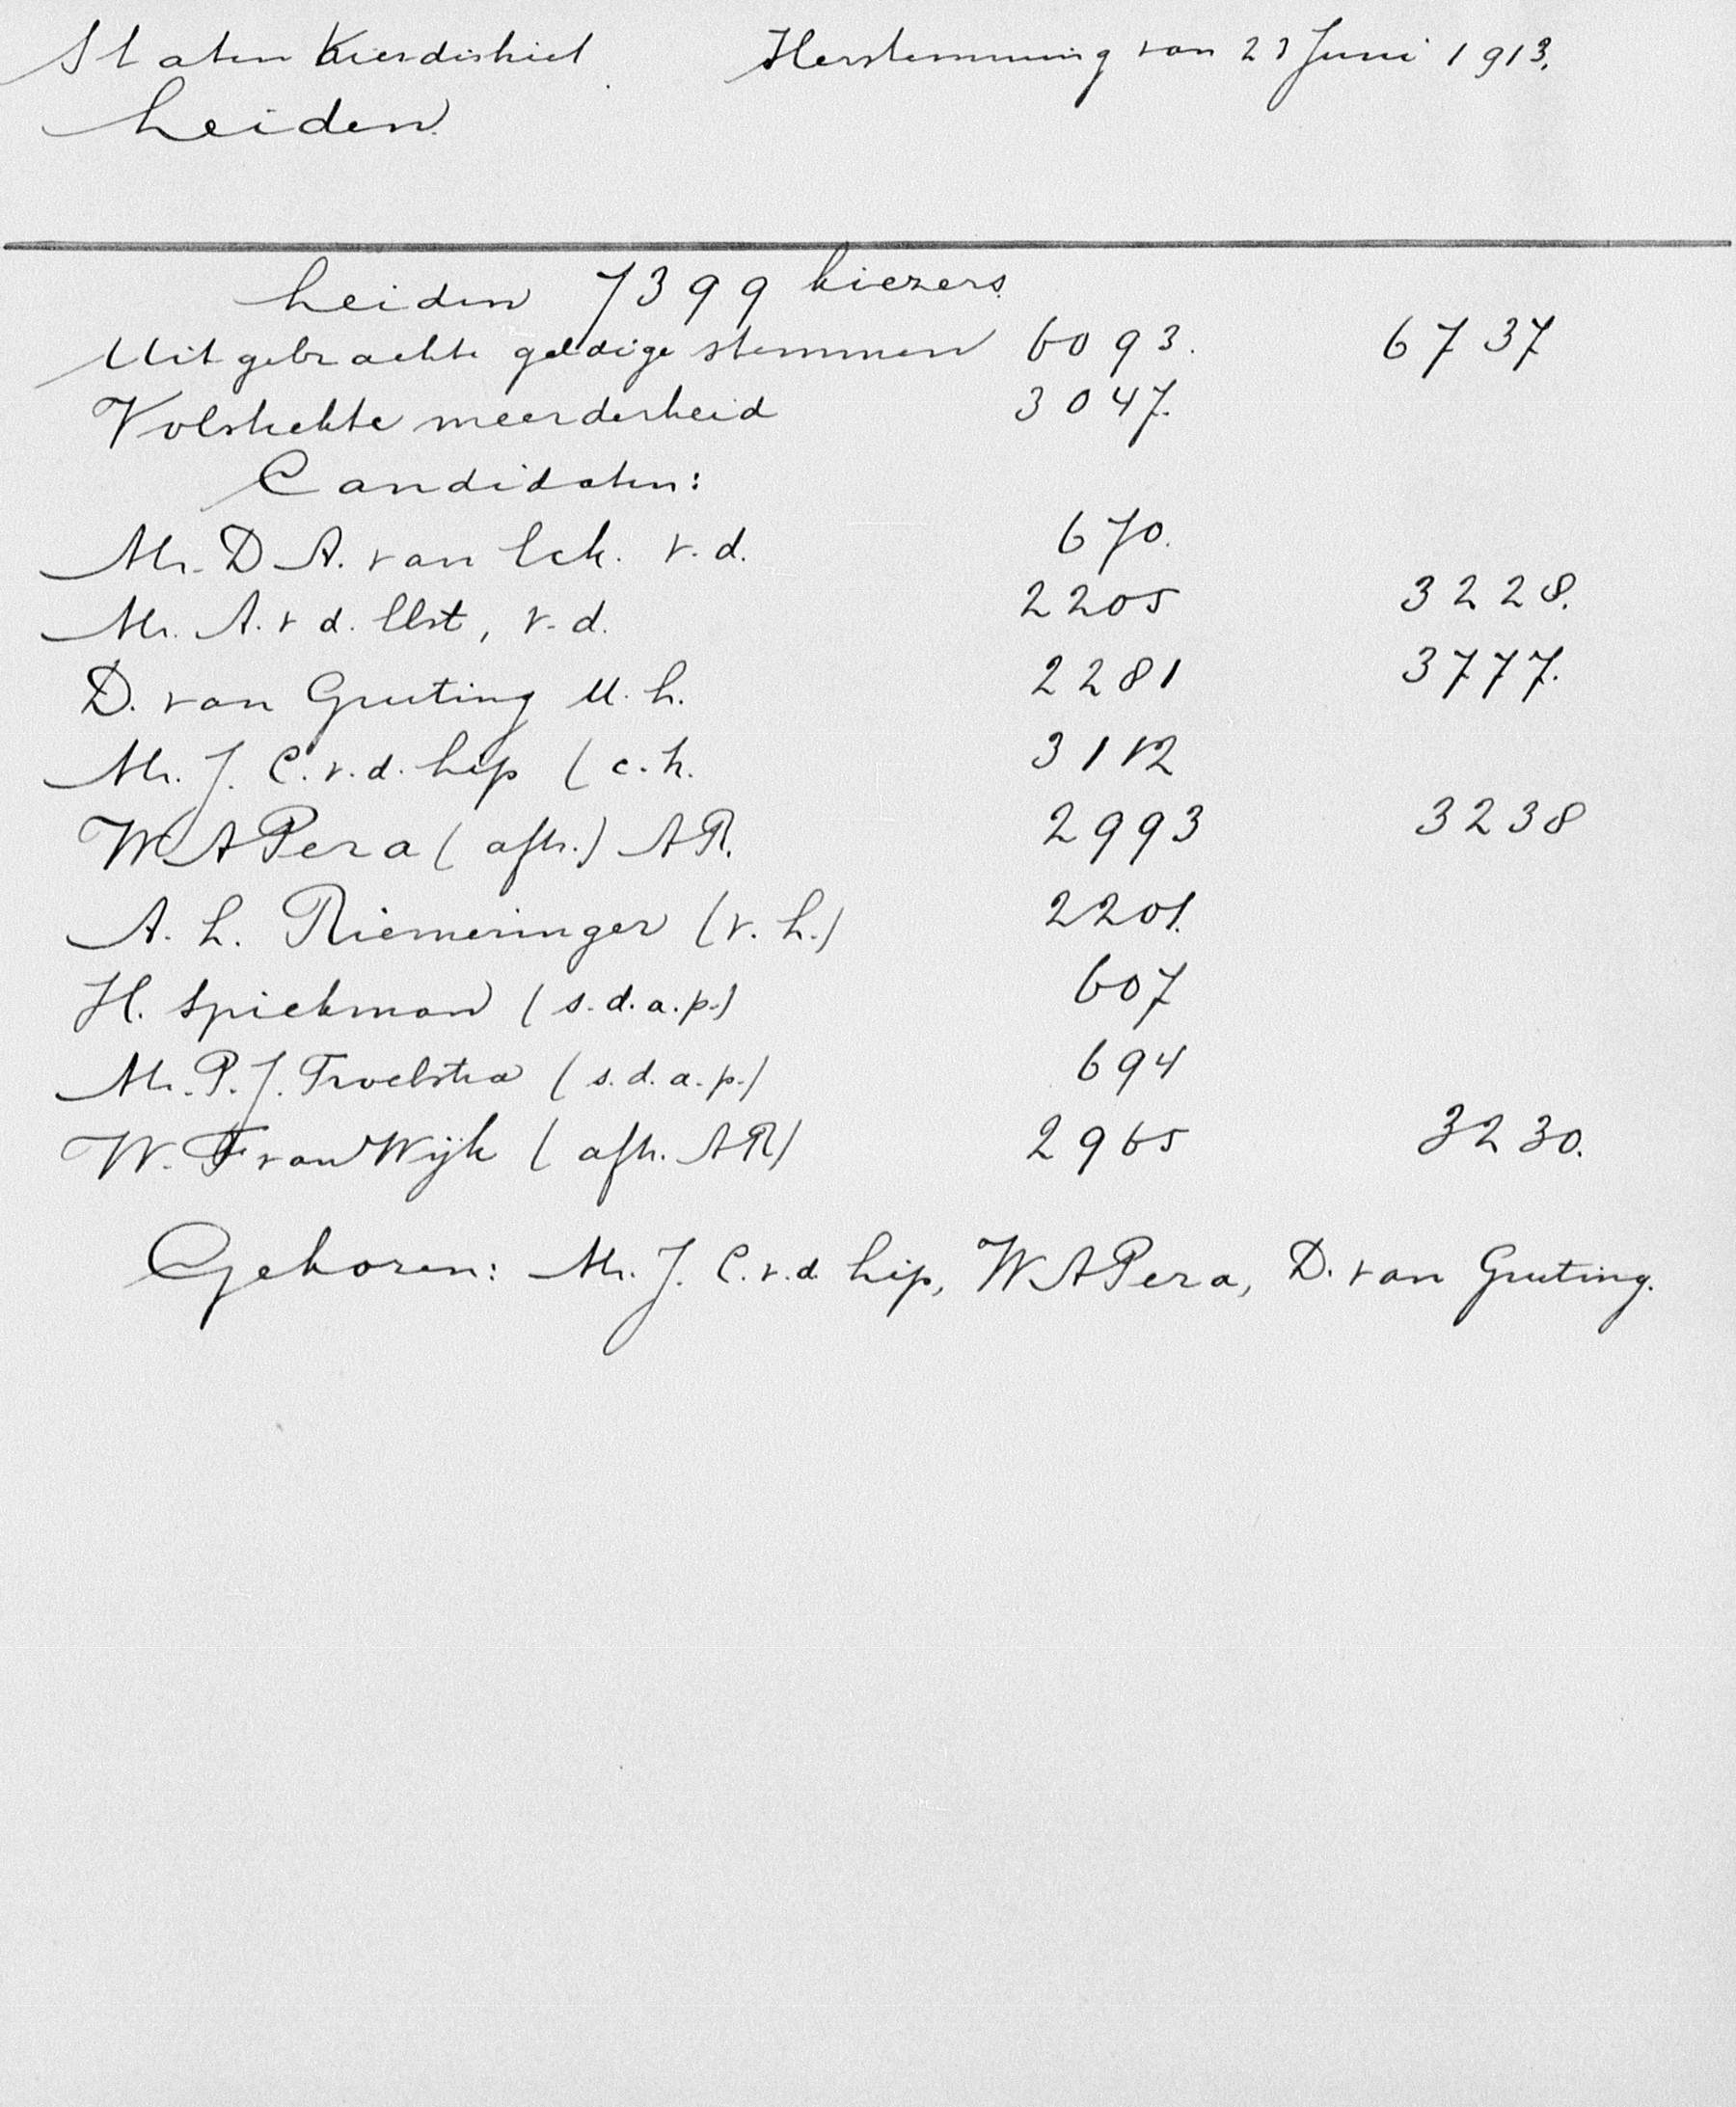 Staten Kiesdistrict Herstemming van 23 Juni 1913.
Leiden
Leiden 7399 kiezers
Uitgebrachte geldige stemmen 6093. 6737
Volstrekte meerderheid 3047.
Candidaten:
Mr. D A. van Eck. v.d. 670.
Mr. A. v d. Elst, v.d. 2205 3228.
D. van Gruting U.L. 2281 3777.
Mr. J. C. v.d. Lip (c.h. 3112
W A Pera (aftr.) AR. 2993 3238
A. L. Riemeringer (v.L.) 2201.
H. Spiekman (s.d.a.p.) 607
Mr. P. J. Troelstra (s.d.a.p.) 694
W. F van Wijk (aftr. AR) 2965 3230.
Gekozen: Mr. J. C. v.d. Lip, W A Pera, D. van Gruting.